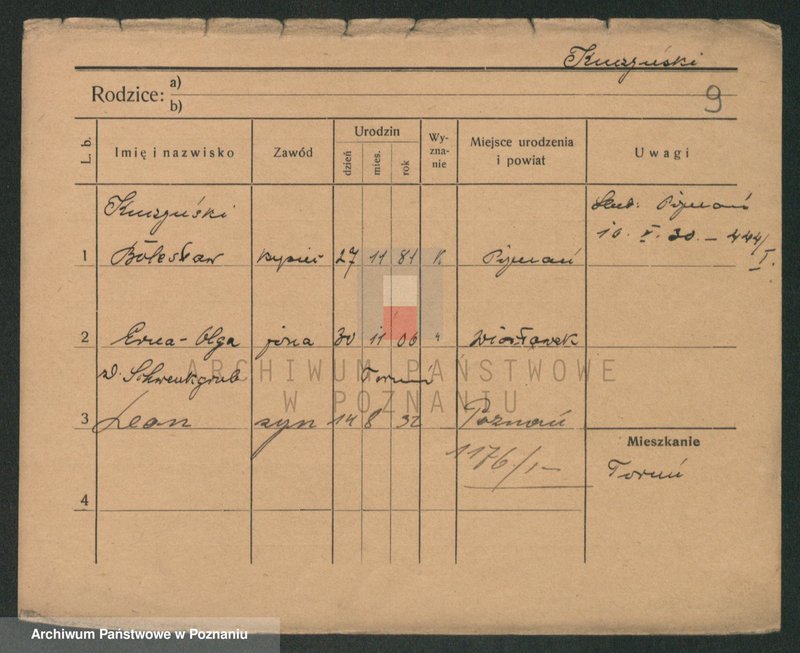 Kuczyński
Rodzice: a)
b)
9
L. b.
Imię i nazwisko
Zawód
Urodzin
dzień
mies.
rok
Wy-
zna-
nie
Miejsce urodzenia
i powiat
Uwagi
Kuczyński
Poznań
10. X. 30. – 444/I.
1 Bolesław kupiec 27 11 81 K Poznań
2 Erna-Olga żona 30 11 06 " Włocławek
Toruń
ARCHIWUM PAŃSTWOWE
W POZNANIU
3 Leon syn 14 8 32 Poznań
Mieszkanie
1176/1-
Toruń
4
Archiwum Państwowe w Poznaniu